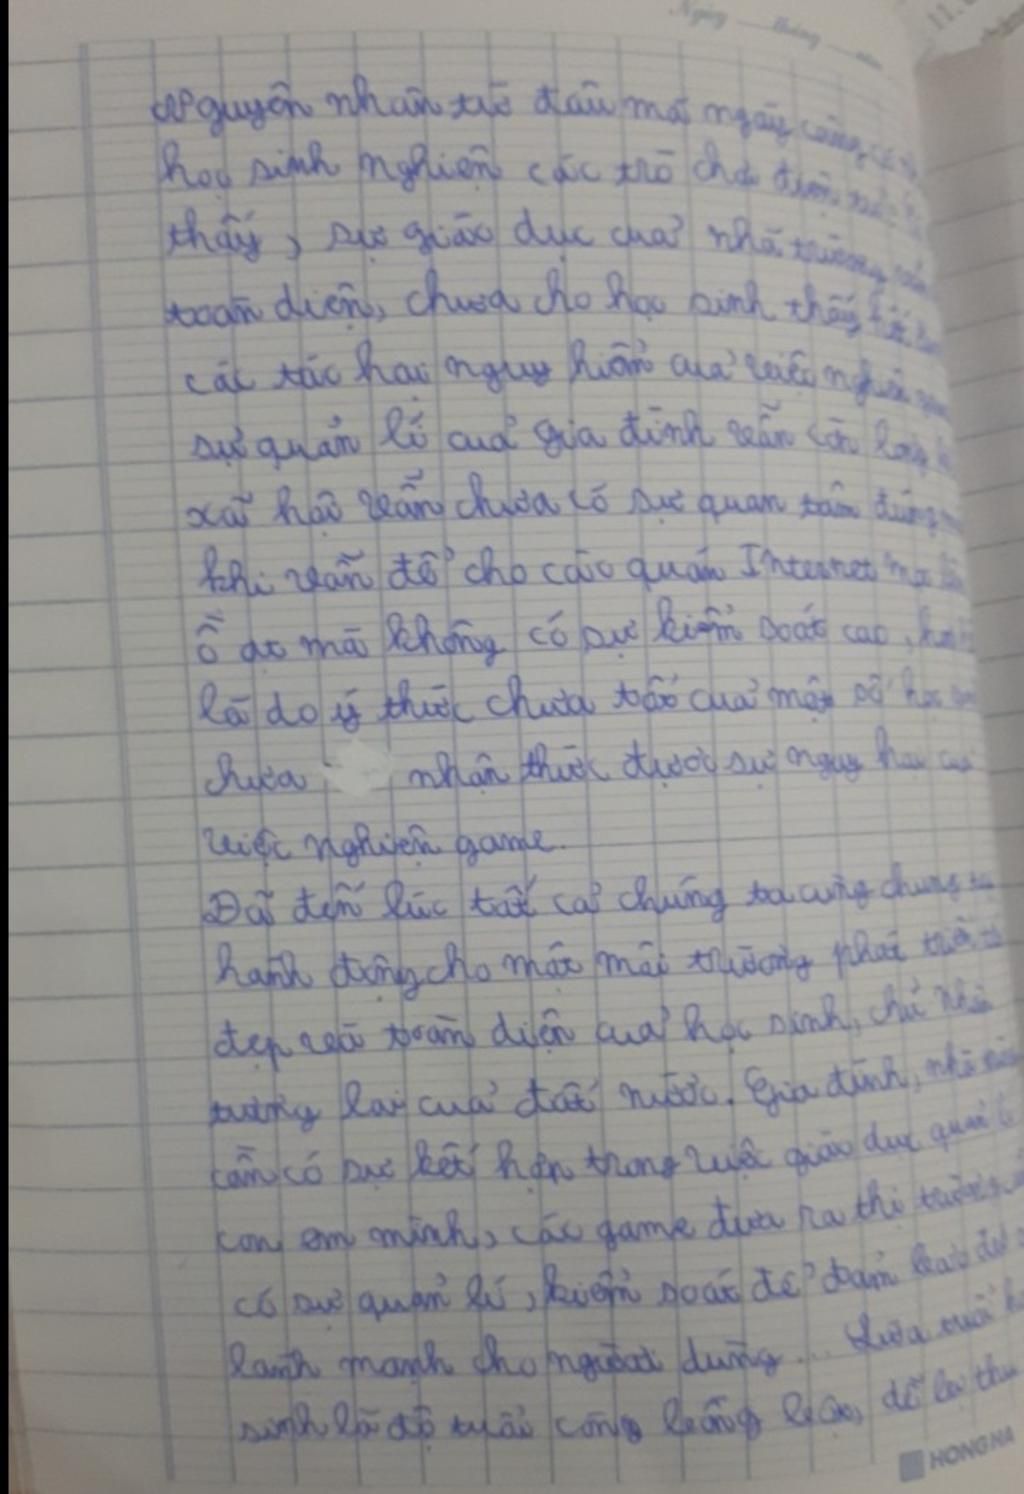 Ngày tháng năm
Nguyên nhân từ đâu mà ngày càng có
học sinh nghiện các trò chơi điện tử
thấy, sự giáo dục của nhà trường
toàn diện, chưa cho học sinh thấy hết
các tác hại nguy hiểm của việc nghiện
sự quản lí của gia đình vẫn còn lỏng
xã hội vẫn chưa có sự quan tâm đúng
khi vẫn để cho các quán Internet mọc lên
ồ ạt mà không có sự kiểm soát cao,
là do ý thức chưa tốt của một số học
chưa nhận thức được sự nguy hại của
việc nghiện game.
Đã đến lúc tất cả chúng ta cùng chung tay
hành động cho một môi trường phát triển
đẹp và toàn diện của học sinh, chủ nhân
tương lai của đất nước. Gia đình, nhà
cần có sự kết hợp trong việc giáo dục quản lí
con em mình, các game đưa ra thị trường
có sự quản lí, kiểm soát để đảm bảo
lành mạnh cho người dùng... Lứa tuổi
sinh là độ tuổi công bông dễ thu
HONG HA